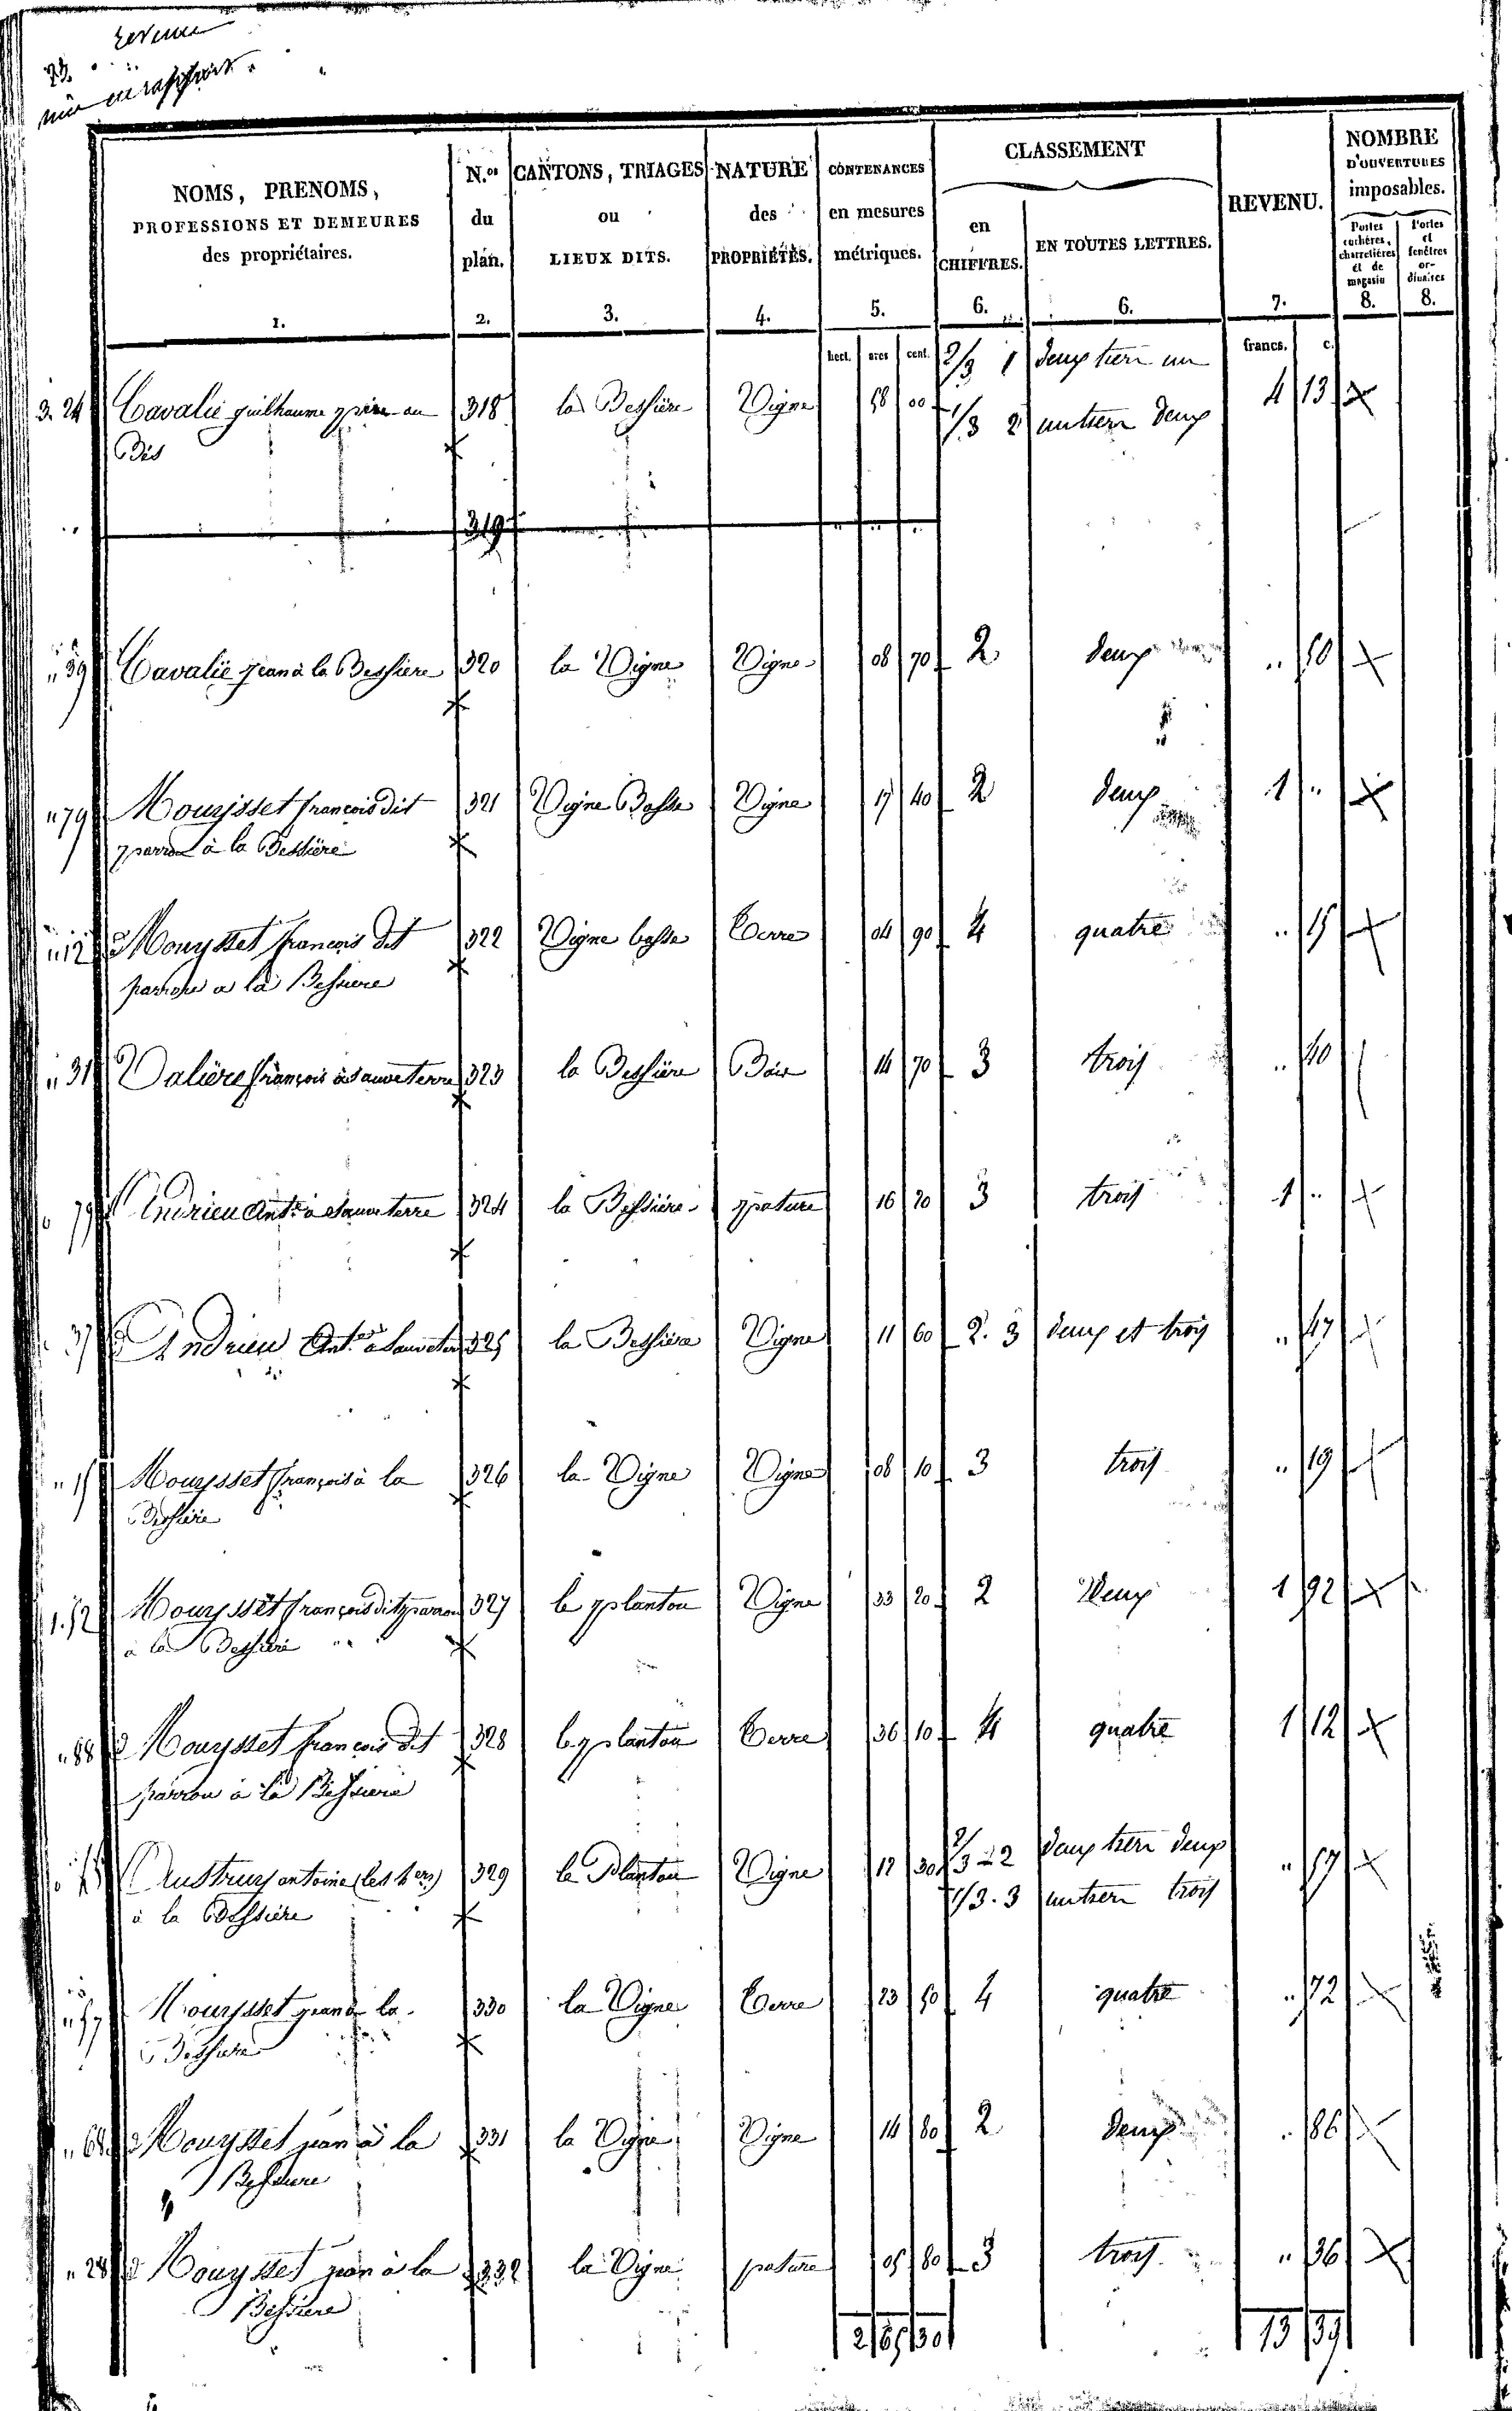 revenu
NOMS, PRENOMS, PROFESSIONS ET DEMEURES des propriétaires. 1.
N.os du plan. 2.
CANTONS, TRIAGES ou LIEUX DITS. 3.
NATURE des PROPRIÉTÉS. 4.
CONTENANCES en mesures métriques. 5.
CLASSEMENT
en CHIFFRES. 6.
EN TOUTES LETTRES. 6.
REVENU. 7.
NOMBRE D'OUVERTURES imposables.
Portes cochères, charretières et de magasin 8.
Portes et fenêtres ordinaires 8.
hect. ares cent. francs. c.
3. 24 Cavalié guilhaume père au 318 la Bessiere Vigne 58 00 2/3 1 deux tiers un 4 13
Bès 1/3 2 un tiers deux
319
" 39 Cavalié jean à la Bessiere 320 la Vigne Vigne 08 70 2 deux " 50
" 79 Mouysset francois dit 321 Vigne Basse Vigne 17 40 2 deux 1 "
parrou à la Bessiere
" 12 d Mouysset francois dit 322 Vigne basse Terre 04 90 4 quatre " 15
parrou a la Bessiere
" 31 Valière françois à Sauveterre 323 la Bessiere Bois 14 70 3 trois " 40
79 Andrieu Ant.e à Sauveterre 324 la Bessiere pature 16 20 3 trois 1 "
37 d Andrieu Ant.e à Sauveter 325 la Bessiere Vigne 11 60 2. 3 deux et trois " 47
" 15 Mouysset françois à la 326 la Vigne Vigne 08 10 3 trois " 19
Bessiere
1. 52 Mouysset françois dit parrou 327 le planton Vigne 33 20 2 Deux 1 92
à la Bessiere
" 88 d Mouysset francois dit 328 le planton Terre 36 10 4 quatre 1 12
parrou à la Bessiere
Austruy antoine (les hers) 329 le Planton Vigne 12 30 2/3 2 deux tiers deux " 57
à la Bessière 1/3. 3 un tiers trois
" 57 Mouysset jean à la 330 la Vigne Terre 23 50 4 quatre " 72
Bessiere
" 68 d Mouysset jean à la 331 la Vigne Vigne 14 80 2 deux " 86
Bessiere
" 28 d Mouysset jean à la 332 la Vigne pature 05 80 3 trois " 36
Bessiere
2 65 30 13 39